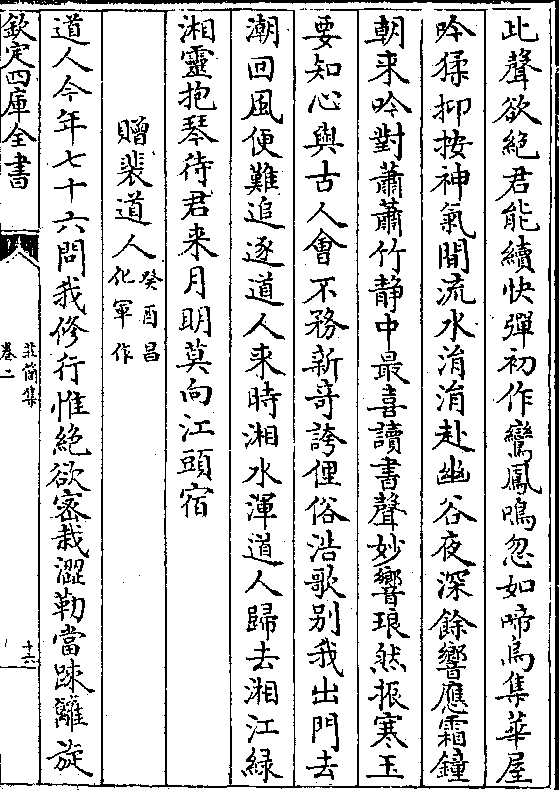 此聲欲絶君能續快彈初作鸞鳳鳴忽如啼烏集華屋
吟猱抑按神氣閒流水涓涓赴幽谷夜深餘響應霜鐘
朝来吟對蕭蕭竹静中最喜讀書聲妙響琅然振寒玉
要知心與古人會不務新奇誇俚俗浩歌别我出門去
潮回風便難追逐道人来時湘水渾道人歸去湘江緑
湘靈抱琴待君来月明莫向江頭宿
贈裴道人癸酉昌化軍作
道人今年七十六問我修行惟絶欲宻栽澀勒當踈籬旋
欽定四庫全書
莊簡集
卷二
十六